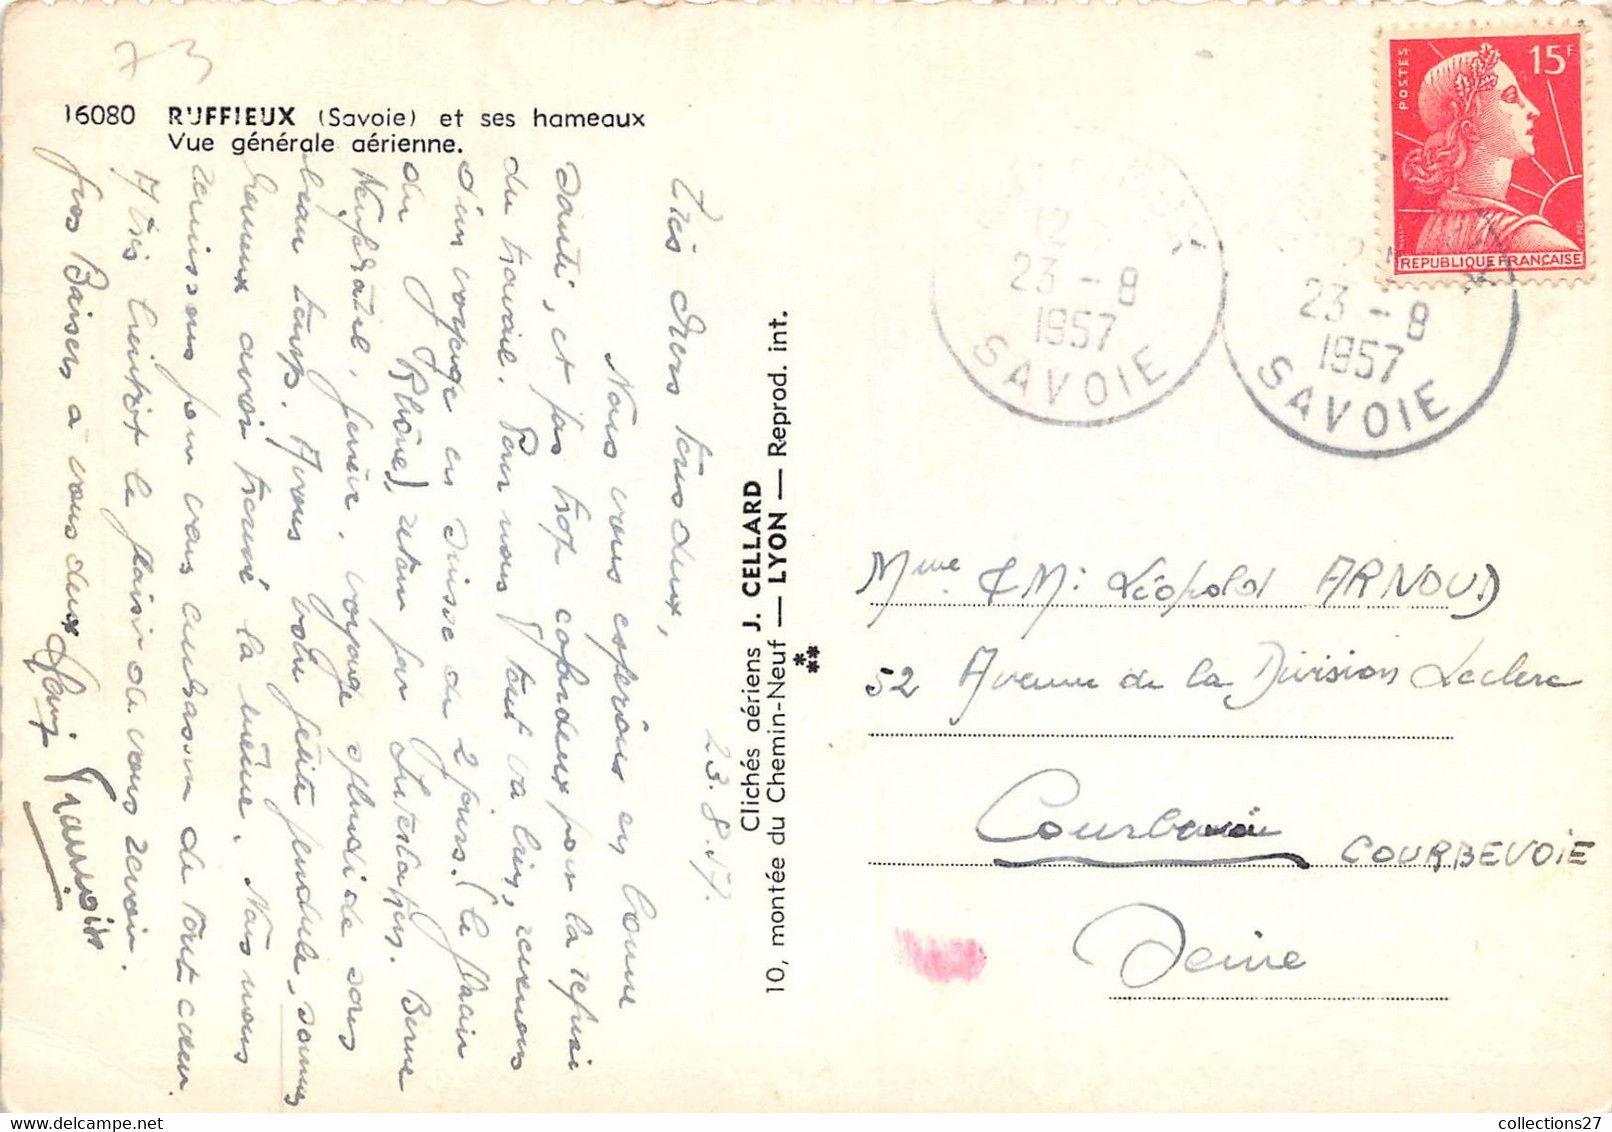 73
16080 RUFFIEUX (Savoie) et ses hameaux
Vue générale aérienne.
23.8.57.
Très chers tous deux,
Nous vous espérons en bonne
santé, et pas trop cafardeux pour la reprise
du travail. Pour nous tout va bien, revenons
d'un voyage en Suisse de 2 jours. (le glacier
du Rhône), retour par Interlaken, Berne
Neufchâtel, Genève. voyage splendide sous
beau temps. Avons votre petite pendule, sommes
heureux avoir trouvé la même. Nous nous
réunissons pour vous embrasser de tout cœur.
A très bientôt le plaisir de vous revoir.
Gros Baisers à vous deux
Clichés aériens J. CELLARD
10, montée du Chemin-Neuf — LYON — Reprod. int.
POSTES
15F
REPUBLIQUE FRANÇAISE
12
23 - 8
1957
SAVOIE
23 - 8
1957
SAVOIE
Mme & M: Léopold ARNOUD
52 Avenue de la Division Leclerc
Courbevoie COURBEVOIE
Seine
collections27